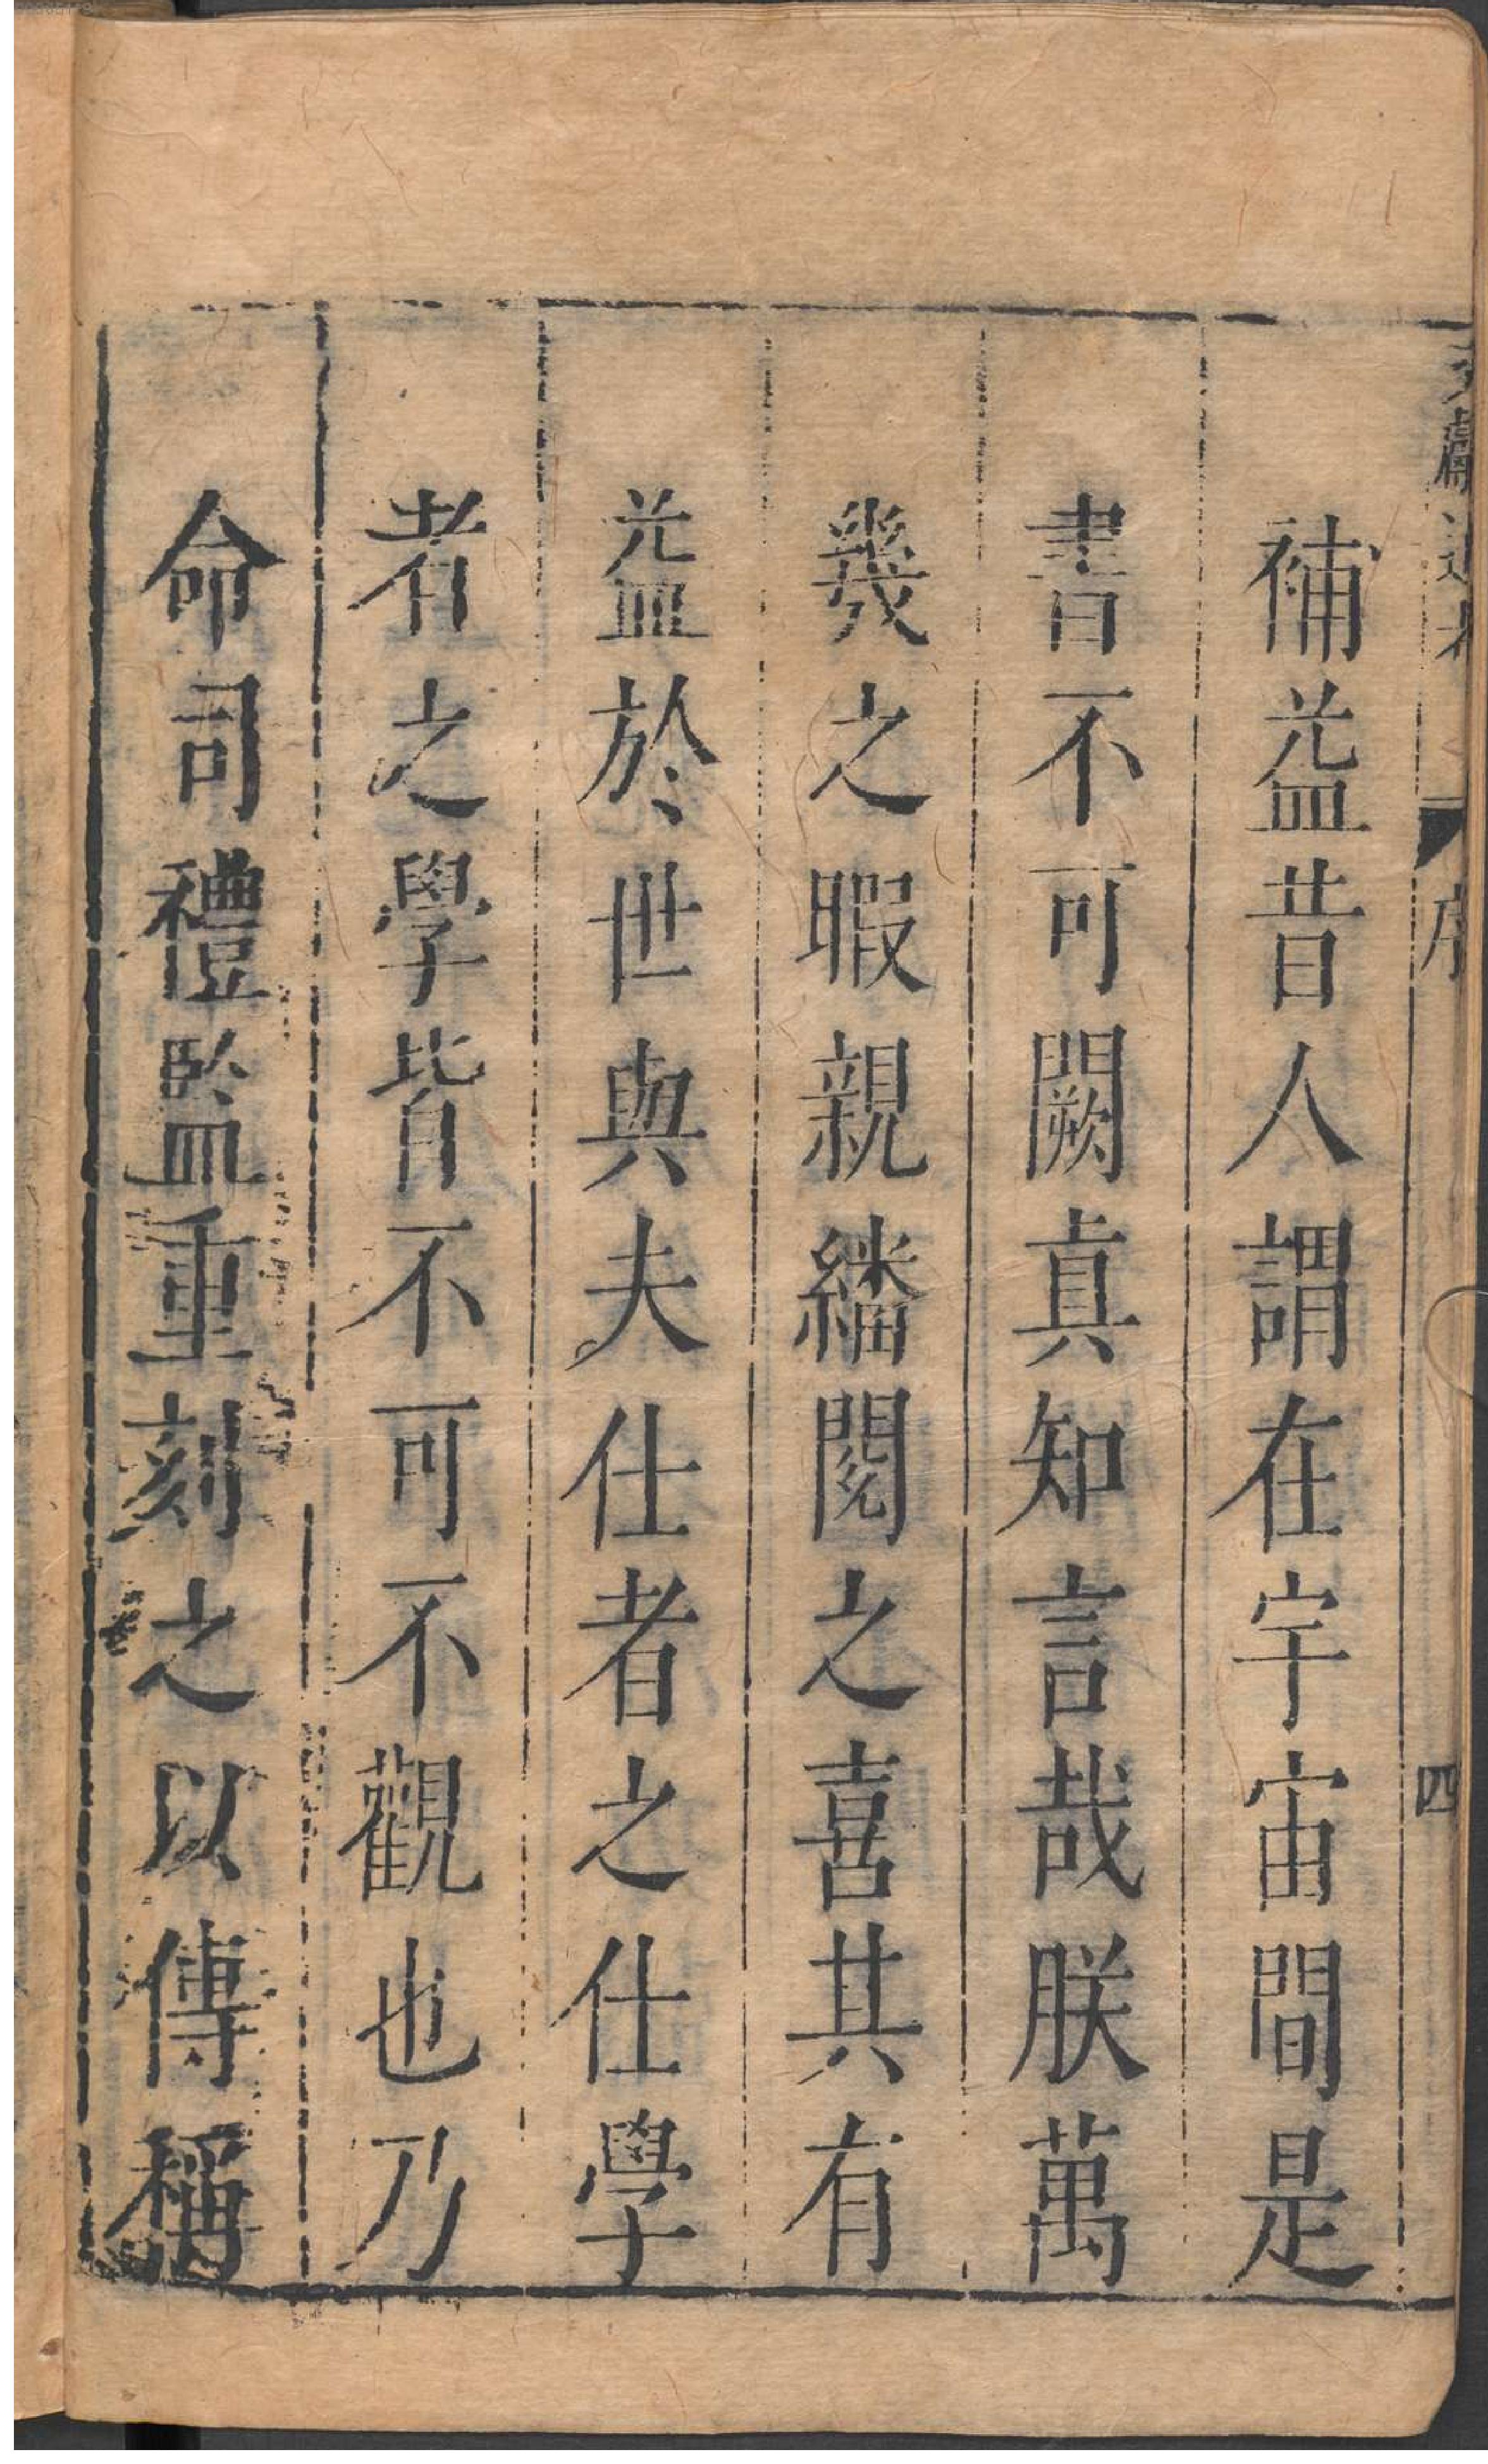 文獻通考
序
四
補益昔人謂在宇宙間是
書不可闕真知言哉朕萬
幾之暇親繙閱之喜其有
益於世與夫仕者之仕學
者之學皆不可不觀也乃
命司禮監重刻之以傳稱